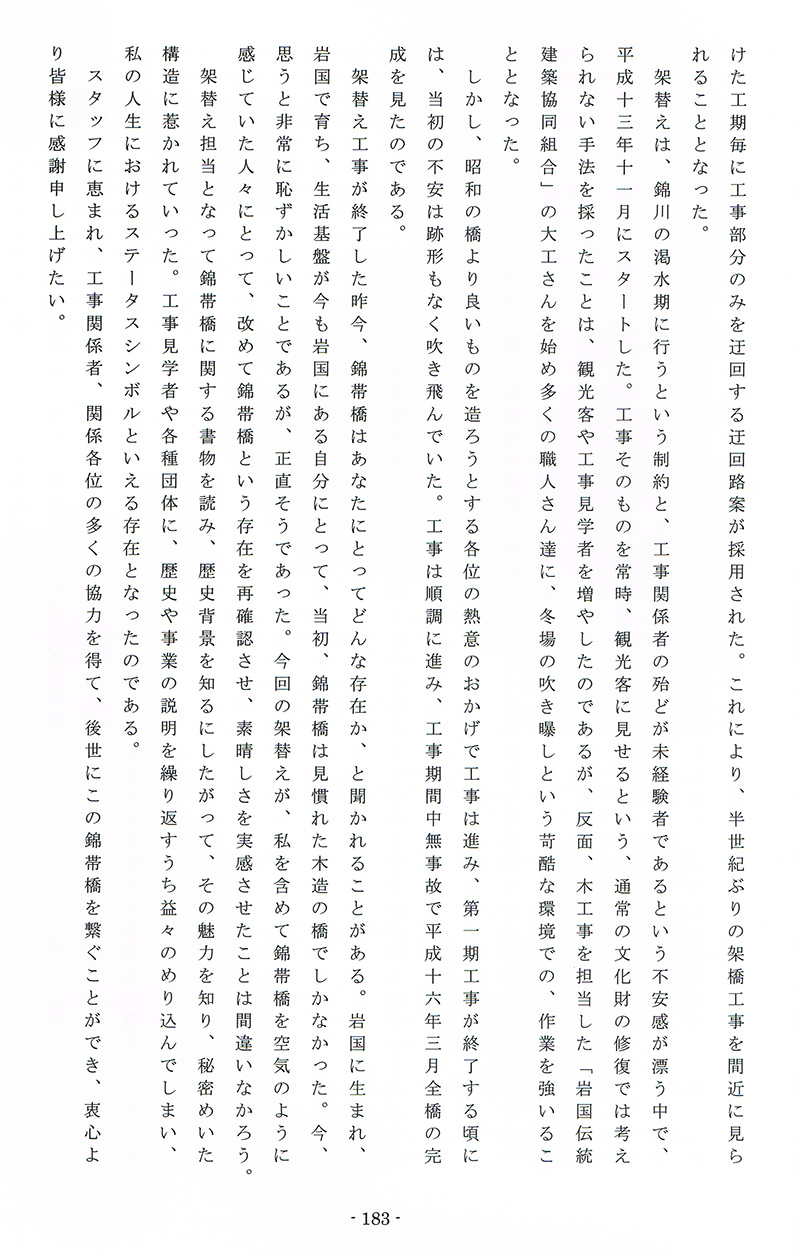 けた工期毎に工事部分のみを迂回する迂回路案が採用された。これにより、半世紀ぶりの架橋工事を間近に見ら
れることとなった。
架替えは、錦川の渇水期に行うという制約と、工事関係者の殆どが未経験者であるという不安感が漂う中で、
平成十三年十一月にスタートした。工事そのものを常時、観光客に見せるという、通常の文化財の修復では考え
られない手法を採ったことは、観光客や工事見学者を増やしたのであるが、反面、木工事を担当した「岩国伝統
建築協同組合」の大工さんを始め多くの職人さん達に、冬場の吹き曝しという苛酷な環境での、作業を強いるこ
ととなった。
しかし、昭和の橋より良いものを造ろうとする各位の熱意のおかげで工事は進み、第一期工事が終了する頃に
は、当初の不安は跡形もなく吹き飛んでいた。工事は順調に進み、工事期間中無事故で平成十六年三月全橋の完
成を見たのである。
架替え工事が終了した昨今、錦帯橋はあなたにとってどんな存在か、と聞かれることがある。岩国に生まれ、
岩国で育ち、生活基盤が今も岩国にある自分にとって、当初、錦帯橋は見慣れた木造の橋でしかなかった。今、
思うと非常に恥ずかしいことであるが、正直そうであった。今回の架替えが、私を含めて錦帯橋を空気のように
感じていた人々にとって、改めて錦帯橋という存在を再確認させ、素晴しさを実感させたことは間違いなかろう。
架替え担当となって錦帯橋に関する書物を読み、歴史背景を知るにしたがって、その魅力を知り、秘密めいた
構造に惹かれていった。工事見学者や各種団体に、歴史や事業の説明を繰り返すうち益々のめり込んでしまい、
私の人生におけるステータスシンボルといえる存在となったのである。
スタッフに恵まれ、工事関係者、関係各位の多くの協力を得て、後世にこの錦帯橋を繋ぐことができ、衷心よ
り皆様に感謝申し上げたい。
- 183 -